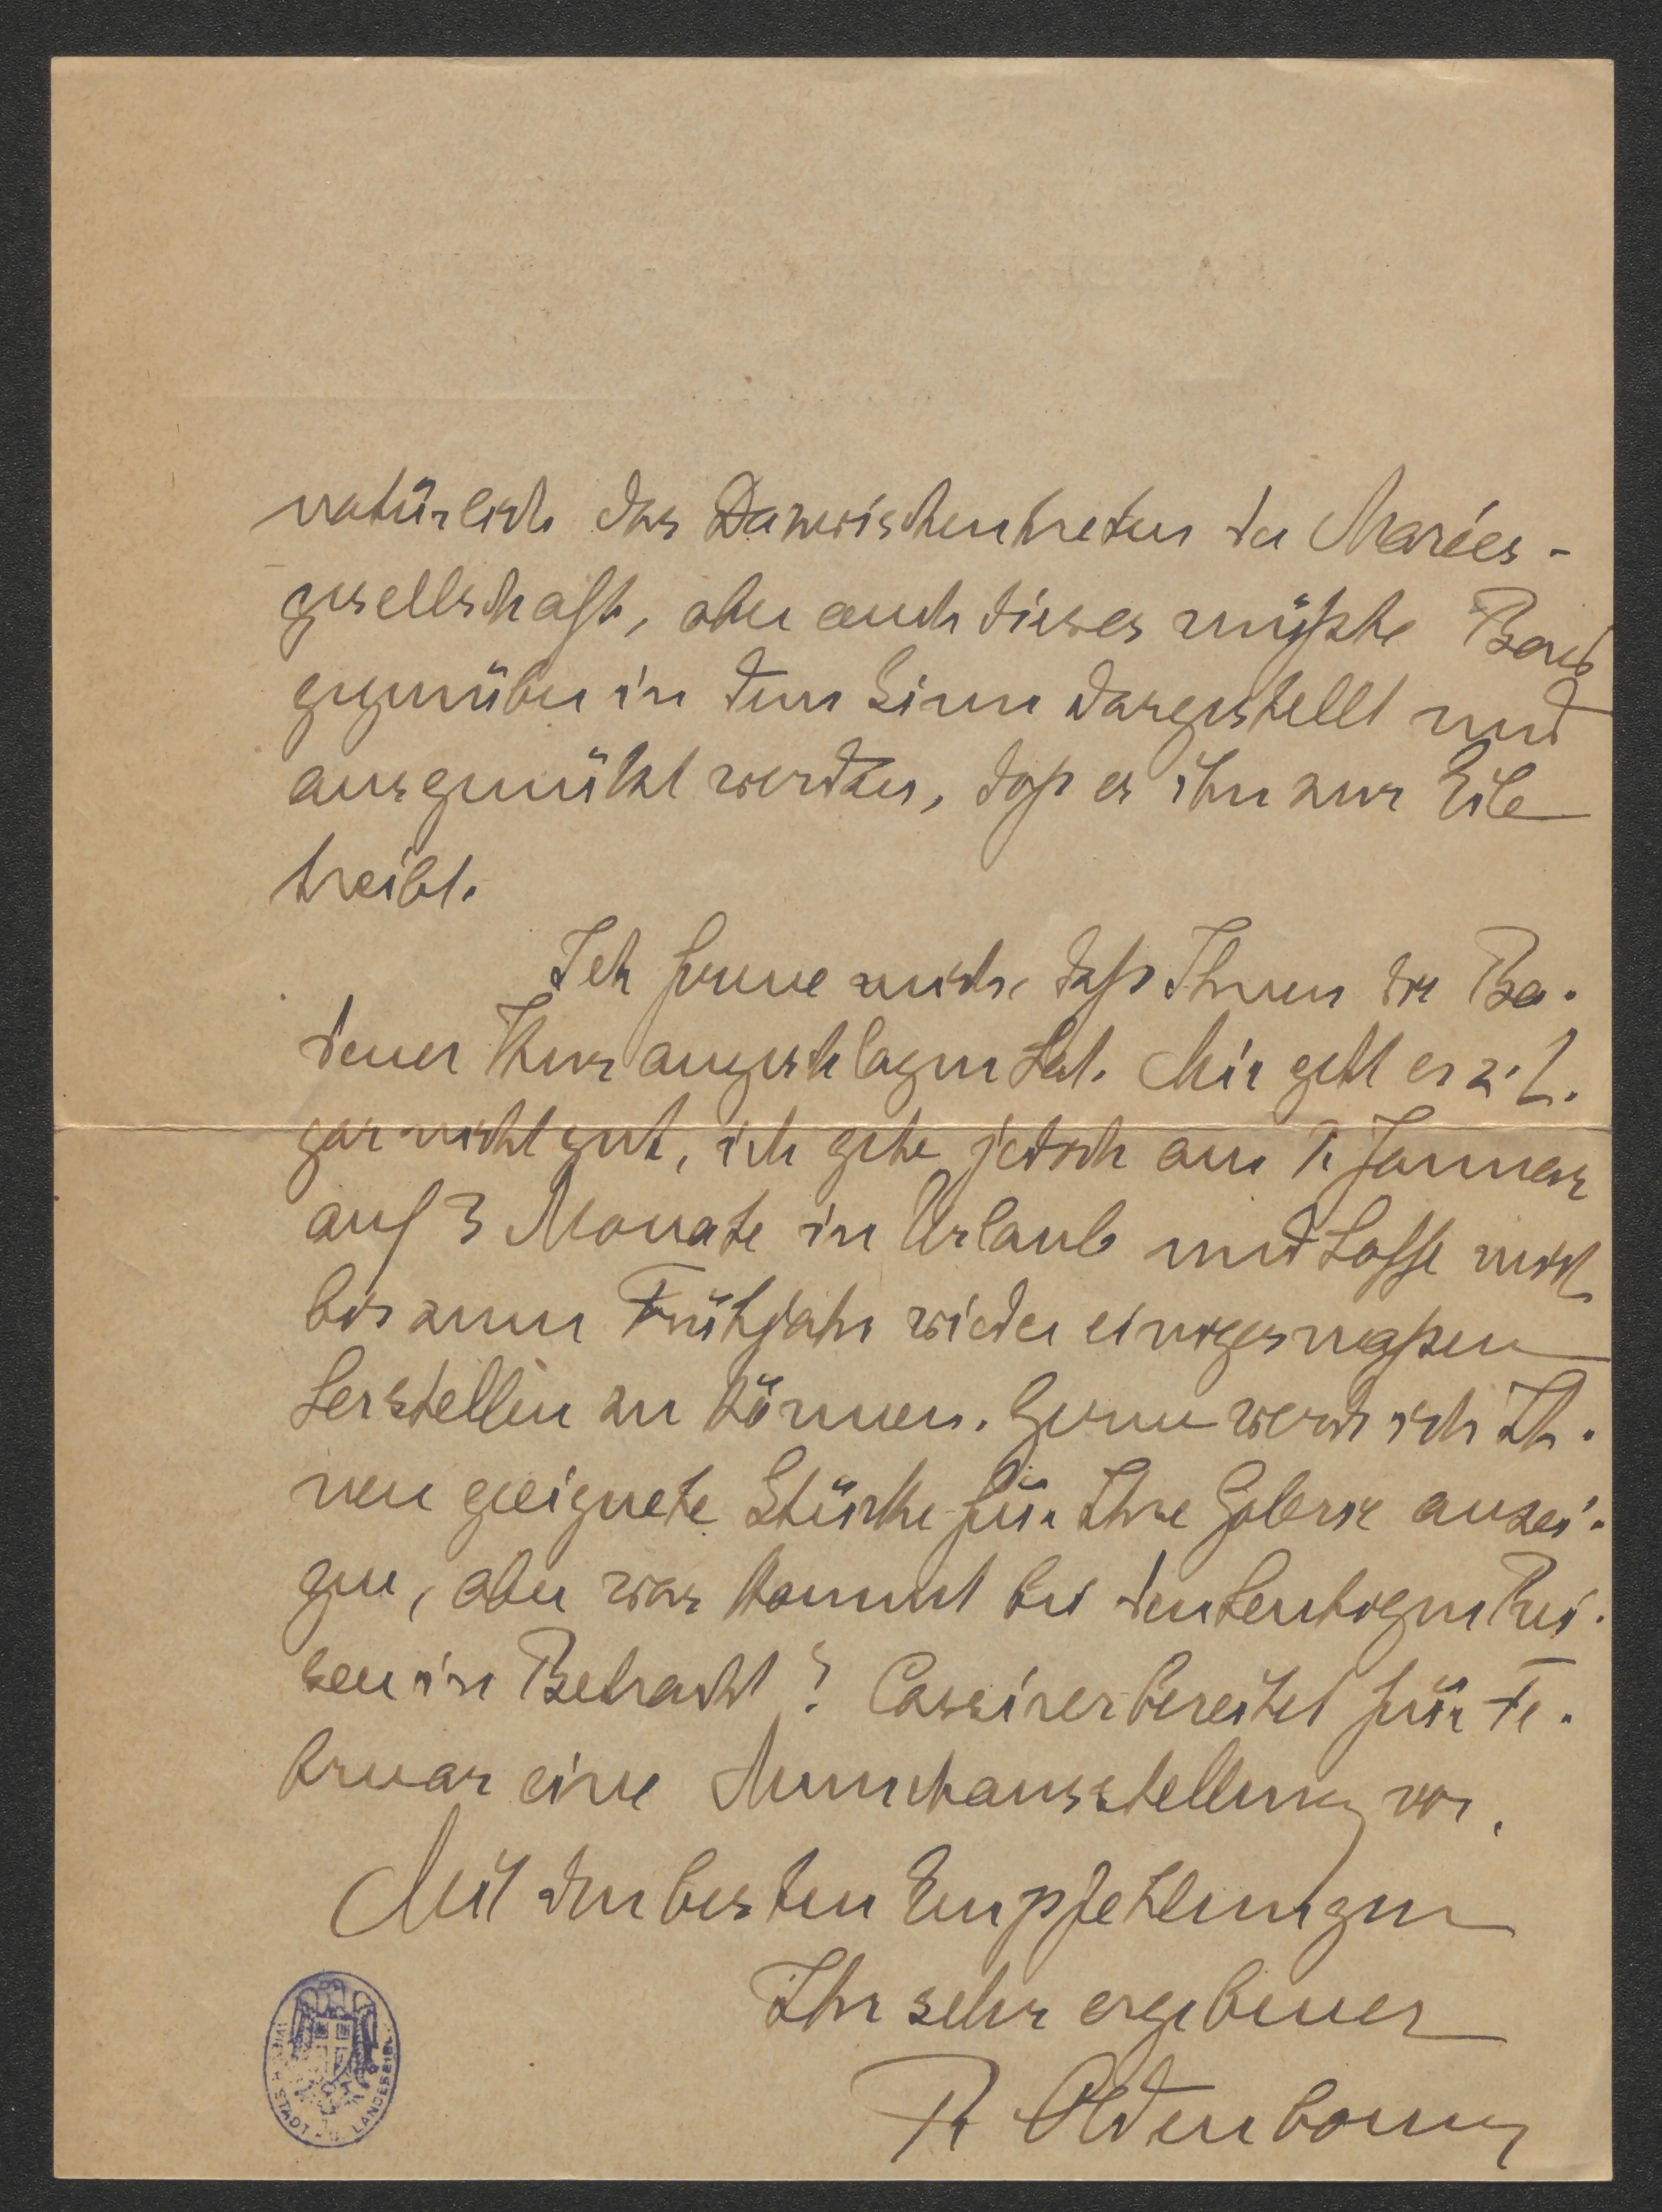 natürlich das Dazwischentreten der Marées-
gesellschaft, aber auch dieses müßte
gegenüber in dem Sinn dargestellt und
ausgenützt werden, daß es ihn zur Eile
treibt.
Ich freue mich, daß Ihnen die Ba-
dener Kur angeschlagen hat. Mir geht es z. Z.
gar nicht gut, ich gehe jedoch am 1. Januar
auf 3 Monate in Urlaub und hoffe mich
bis zum Frühjahr wieder einigermaßen
herstellen zu können. Gerne werde ich Ih-
nen geeignete Stücke für Ihre Galerie anzei-
gen, aber was kommt bei den heutigen Prei-
sen in Betracht? Cassirer bereitet für Fe-
bruar eine Munchausstellung vor.
Mit den besten Empfehlungen
Ihr sehr ergebener
R Oldenbourg
STADT- U. LANDESBIBL.